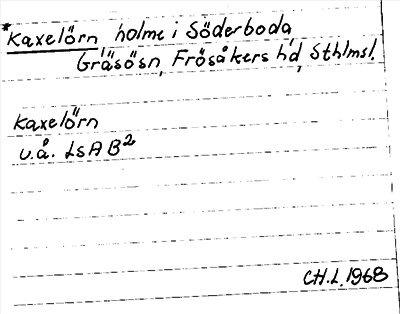 *Kaxelörn holme i Söderboda
Gräsösn, Frösåkers hd, Sthlmsl.
Kaxelörn
u.å. LSA B²
CH.L. 1968